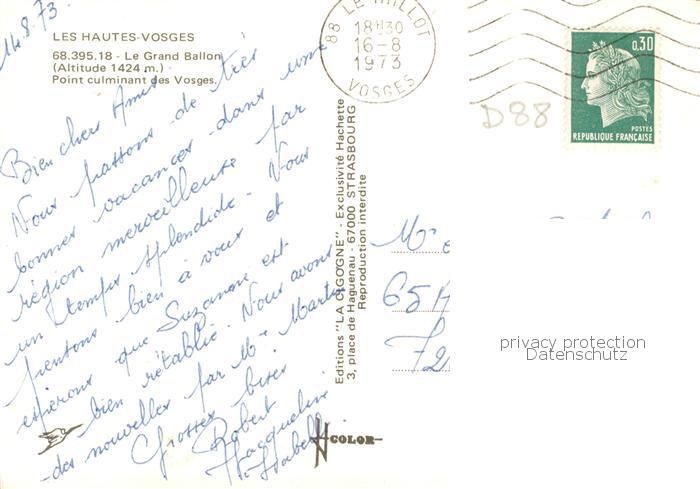 14.8.73
LES HAUTES-VOSGES
68.395.18 - Le Grand Ballon
(Altitude 1424 m.)
Point culminant des Vosges.
Bien chers Amis
Nous passons de très
bonnes vacances dans une
région merveilleuse par
un temps splendide. Nous
pensons bien à vous et
espérons que Suzanne est
bien rétablie. Nous avons
des nouvelles par Me Martin
Grosses bises
Robert
Jacqueline
Isabelle
88 LE THILLOT
18H30
16-8
1973
VOSGES
0,30
POSTES
REPUBLIQUE FRANÇAISE
D88
Editions "LA CIGOGNE" - Exclusivité Hachette
3, place de Haguenau - 67000 STRASBOURG
Reproduction interdite
COLOR
65
72
privacy protection
Datenschutz